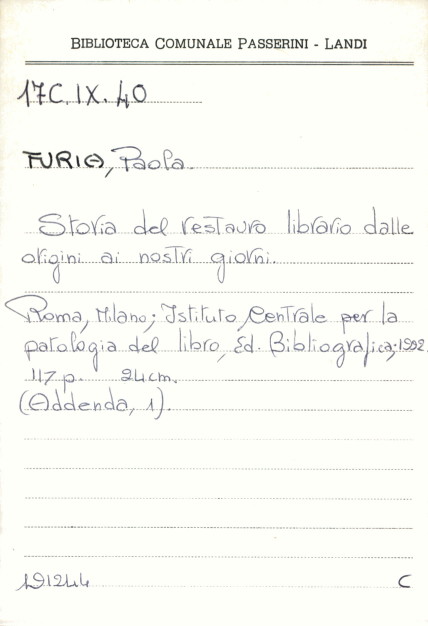 BIBLIOTECA COMUNALE PASSERINI - LANDI
17C.IX.40
FURIA, Paola.
Storia del restauro librario dalle
origini ai nostri giorni.
Roma, Milano; Istituto Centrale per la
patologia del libro, Ed. Bibliografica; 1992.
117 p. 24cm.
(Addenda, 1).
191244 C